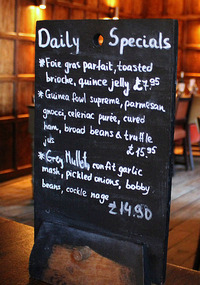 Daily Specials
*Foie gras parfait, toasted
brioche, quince jelly £7.95
*Guinea fowl supreme, parmesan
gnocci, celeriac purée, cured
ham, broad beans & truffle
jus £15.95
*Grey Mullet, confit garlic
mash, pickled onions, bobby
beans, cockle nage
£14.90